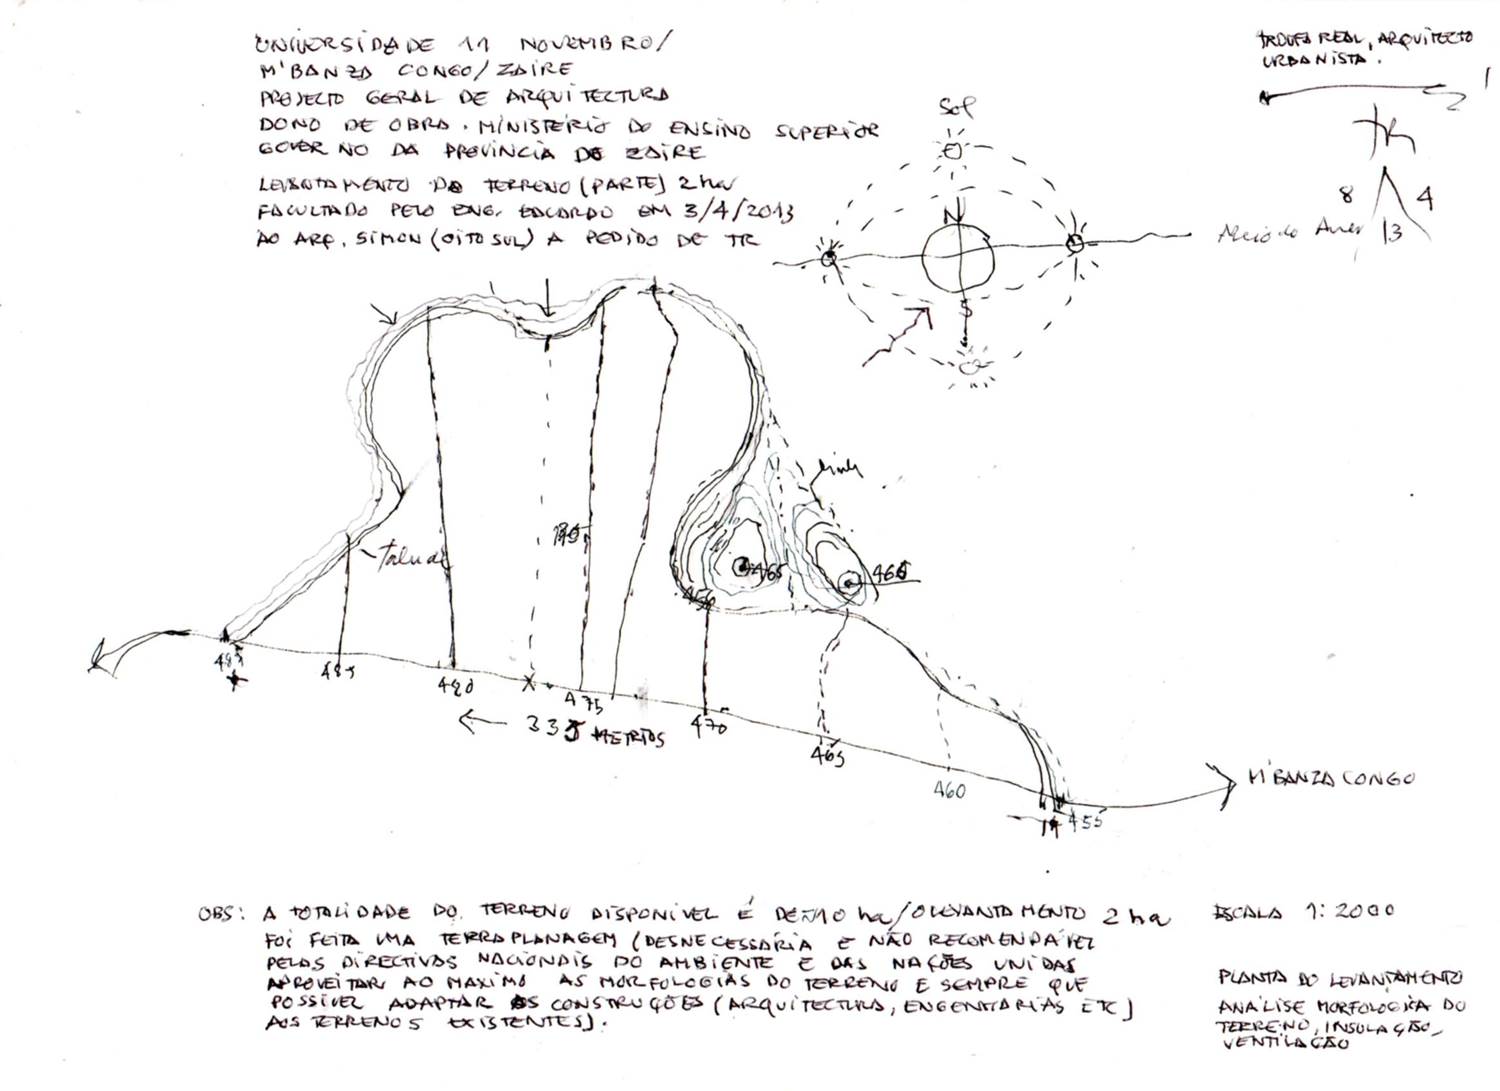 UNIVERSIDADE 11 NOVEMBRO/
M'BANZA CONGO/ZAIRE
PROJECTO GERAL DE ARQUITECTURA
DONO DE OBRA. MINISTÉRIO DO ENSINO SUPERIOR
GOVERNO DA PROVINCIA DE ZAIRE
LEVANTAMENTO DO TERRENO (PARTE) 2 ha
FACULTADO PELO ENG. EDUARDO EM 3/4/2013
AO ARQ. SIMON (OITO SUL) A PEDIDO DE TR
TROUFA REAL, ARQUITECTO
URBANISTA.
1
2
TR
8 4
13
Sol
N
S
talude
465
465
485
485
480
X
475
470
465
460
455
335 METROS
M'BANZA CONGO
OBS: A TOTALIDADE DO TERRENO DISPONÍVEL É DE 10 ha/O LEVANTAMENTO 2 ha
FOI FEITA UMA TERRAPLANAGEM (DESNECESSÁRIA E NÃO RECOMENDAVEL
PELAS DIRECTIVAS NACIONAIS DO AMBIENTE E DAS NAÇÕES UNIDAS
APROVEITAR AO MAXIMO AS MORFOLOGIAS DO TERRENO E SEMPRE QUE
POSSIVEL ADAPTAR AS CONSTRUÇÕES (ARQUITECTURA, ENGENHARIAS ETC)
AOS TERRENOS EXISTENTES).
ESCALA 1:2000
PLANTA DO LEVANTAMENTO
ANÁLISE MORFOLOGICA DO
TERRENO, INSOLAÇÃO,
VENTILAÇÃO